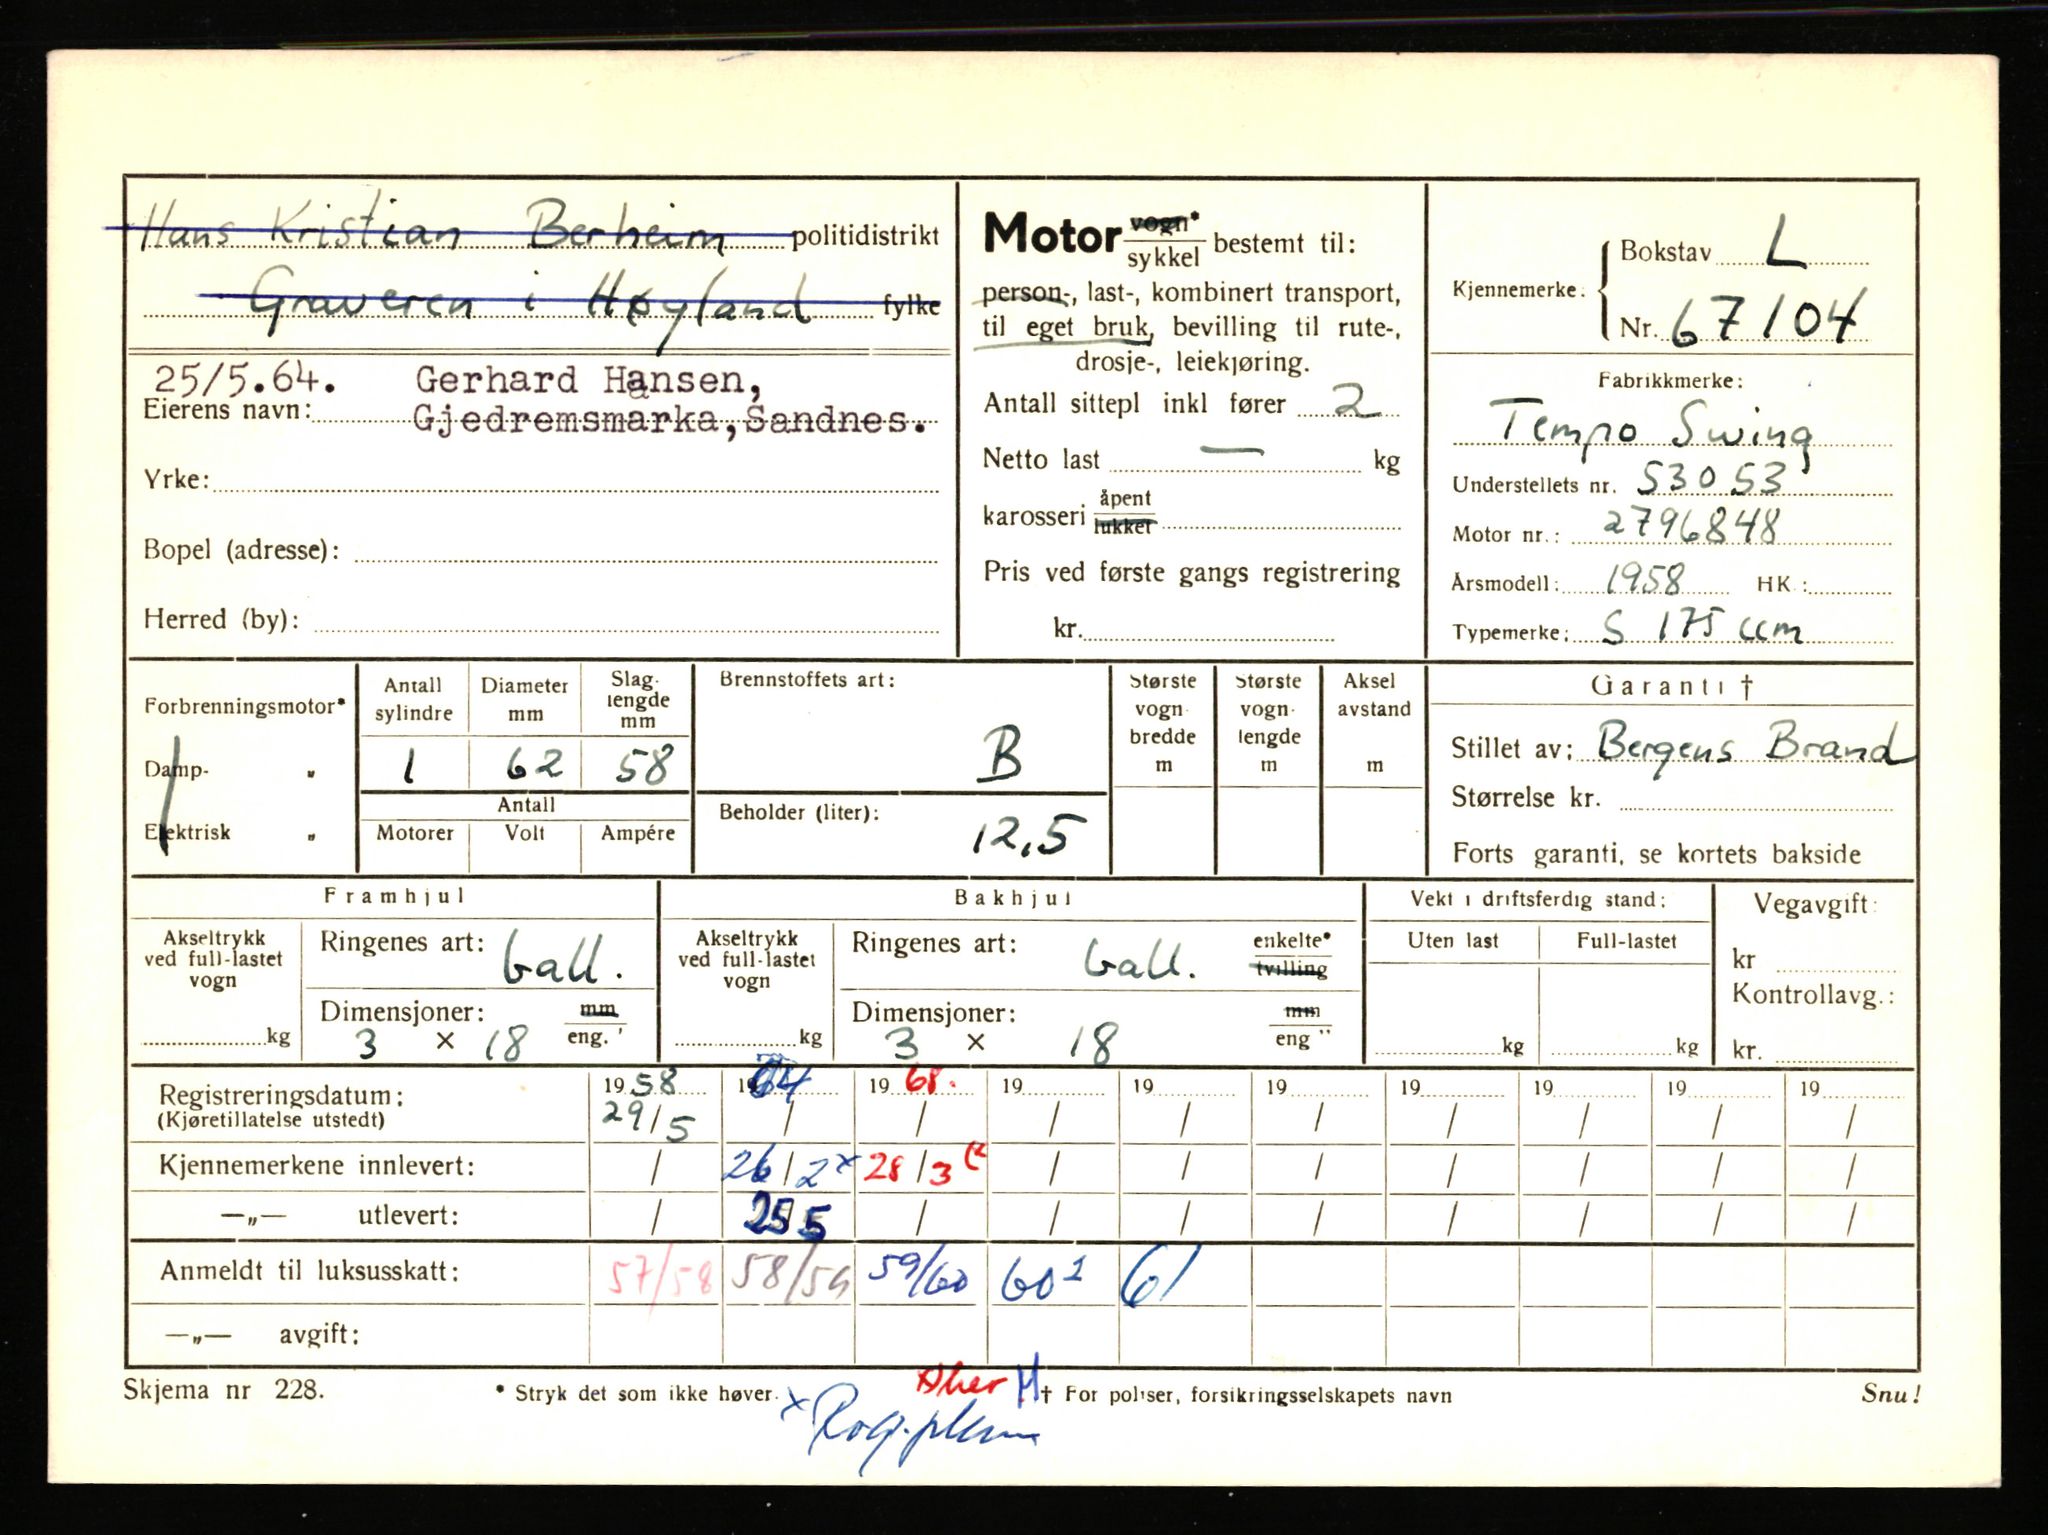 Hans Kristian Berheim politidistrikt
Graveren i Høyland fylke
25/5.64. Gerhard Hansen,
Eierens navn: Gjedremsmarka, Sandnes.
Yrke:
Bopel (adresse):
Herred (by):
Motor vogn* sykkel bestemt til:
person-, last-, kombinert transport,
til eget bruk, bevilling til rute-,
drosje-, leiekjøring.
Antall sittepl inkl fører 2
Netto last — kg
karosseri åpent lukket
Pris ved første gangs registrering
kr.
Kjennemerke: Bokstav L
Nr. 67104
Fabrikkmerke:
Tempo Swing
Understellets nr. 53053
Motor nr.: 2796848
Årsmodell: 1958 HK.:
Typemerke: S 175 ccm
Forbrenningsmotor*
Damp- „
Elektrisk „
Antall sylindre
Diameter mm
Slag-lengde mm
1 62 58
Antall
Motorer Volt Ampére
Brennstoffets art:
B
Beholder (liter):
12,5
Største vogn-bredde m
Største vogn-lengde m
Aksel avstand m
Garanti †
Stillet av: Bergens Brand
Størrelse kr.
Forts garanti, se kortets bakside
Framhjul
Akseltrykk ved full-lastet vogn
kg
Ringenes art: ball.
Dimensjoner: mm
3 × 18 eng. '
Bakhjul
Akseltrykk ved full-lastet vogn
kg
Ringenes art: ball. enkelte* tvilling
Dimensjoner: mm
3 × 18 eng "
Vekt i driftsferdig stand:
Uten last Full-lastet
kg kg
Vegavgift:
kr
Kontrollavg.:
kr.
Registreringsdatum: 1958 1964 1968. 19 19 19 19 19 19 19
(Kjøretillatelse utstedt) 29/5 / / / / / / / / /
Kjennemerkene innlevert: / 26/2 x 28/3 / / / / / / /
—„— utlevert: / 25 5 / / / / / / / /
Anmeldt til luksusskatt: 57/58 58/59 59/60 60² 61
—„— avgift:
Skjema nr 228.
* Stryk det som ikke høver.
† For poliser, forsikringsselskapets navn
Snu!